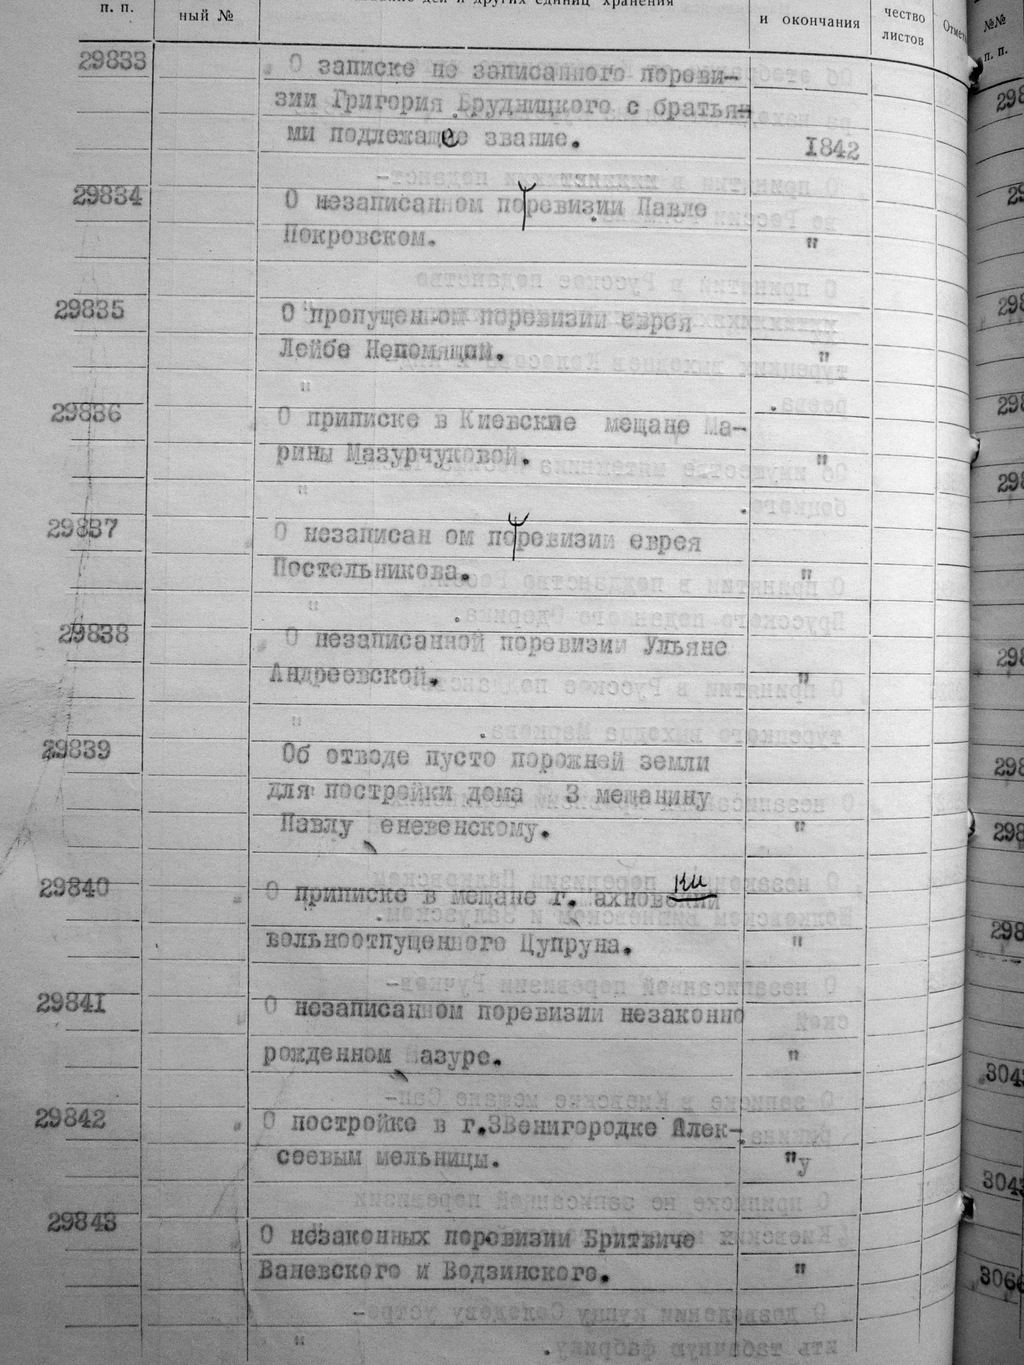 п. п.
ный №
и других единиц хранения
и окончания
чество
листов
№№
п. п.
29833
О записке не записанного переви-
зии Григория Брудницкого с братья-
ми подлежащее звание.
1842
29834
О незаписанном поревизии Павле
Покровском.
"
29835
О пропущен-ом поревизии еврея
Лейбе Непомящий.
"
"
29836
О приписке в Киевские мещане Ма-
рины Мазурчуковой.
"
"
29837
О незаписан ом поревизии еврея
Постельникова.
"
"
29838
О незаписанной поревизии Ульяне
Андреевской.
"
"
29839
Об отводе пусто порожней земли
для постройки дома 3 мещанину
Павлу еневенскому.
"
29840
О приписке в мещане г. ахновский
ки
вольноотпущенного Цупруна.
"
29841
О незаписанном поревизии незаконно
рожденном азуре.
"
29842
О постройке в г.ЗВенигородке Алек-
сеевым мельницы.
"у
29843
О незаконных поревизии Бритвиче
Ваневского и Водзинского.
"
"